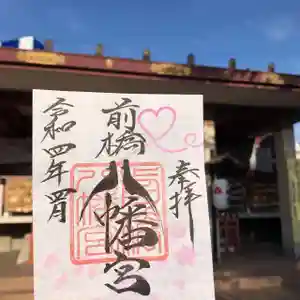 奉拝
前橋八幡宮
令和四年四月